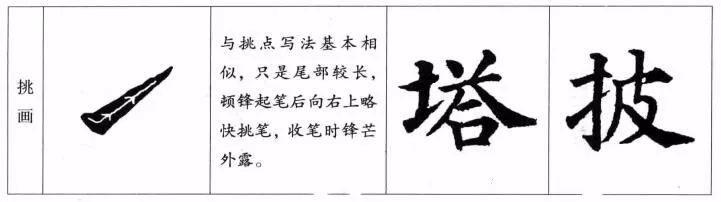 挑画
与挑点写法基本相
似，只是尾部较长，
顿锋起笔后向右上略
快挑笔，收笔时锋芒
外露。
塔
披